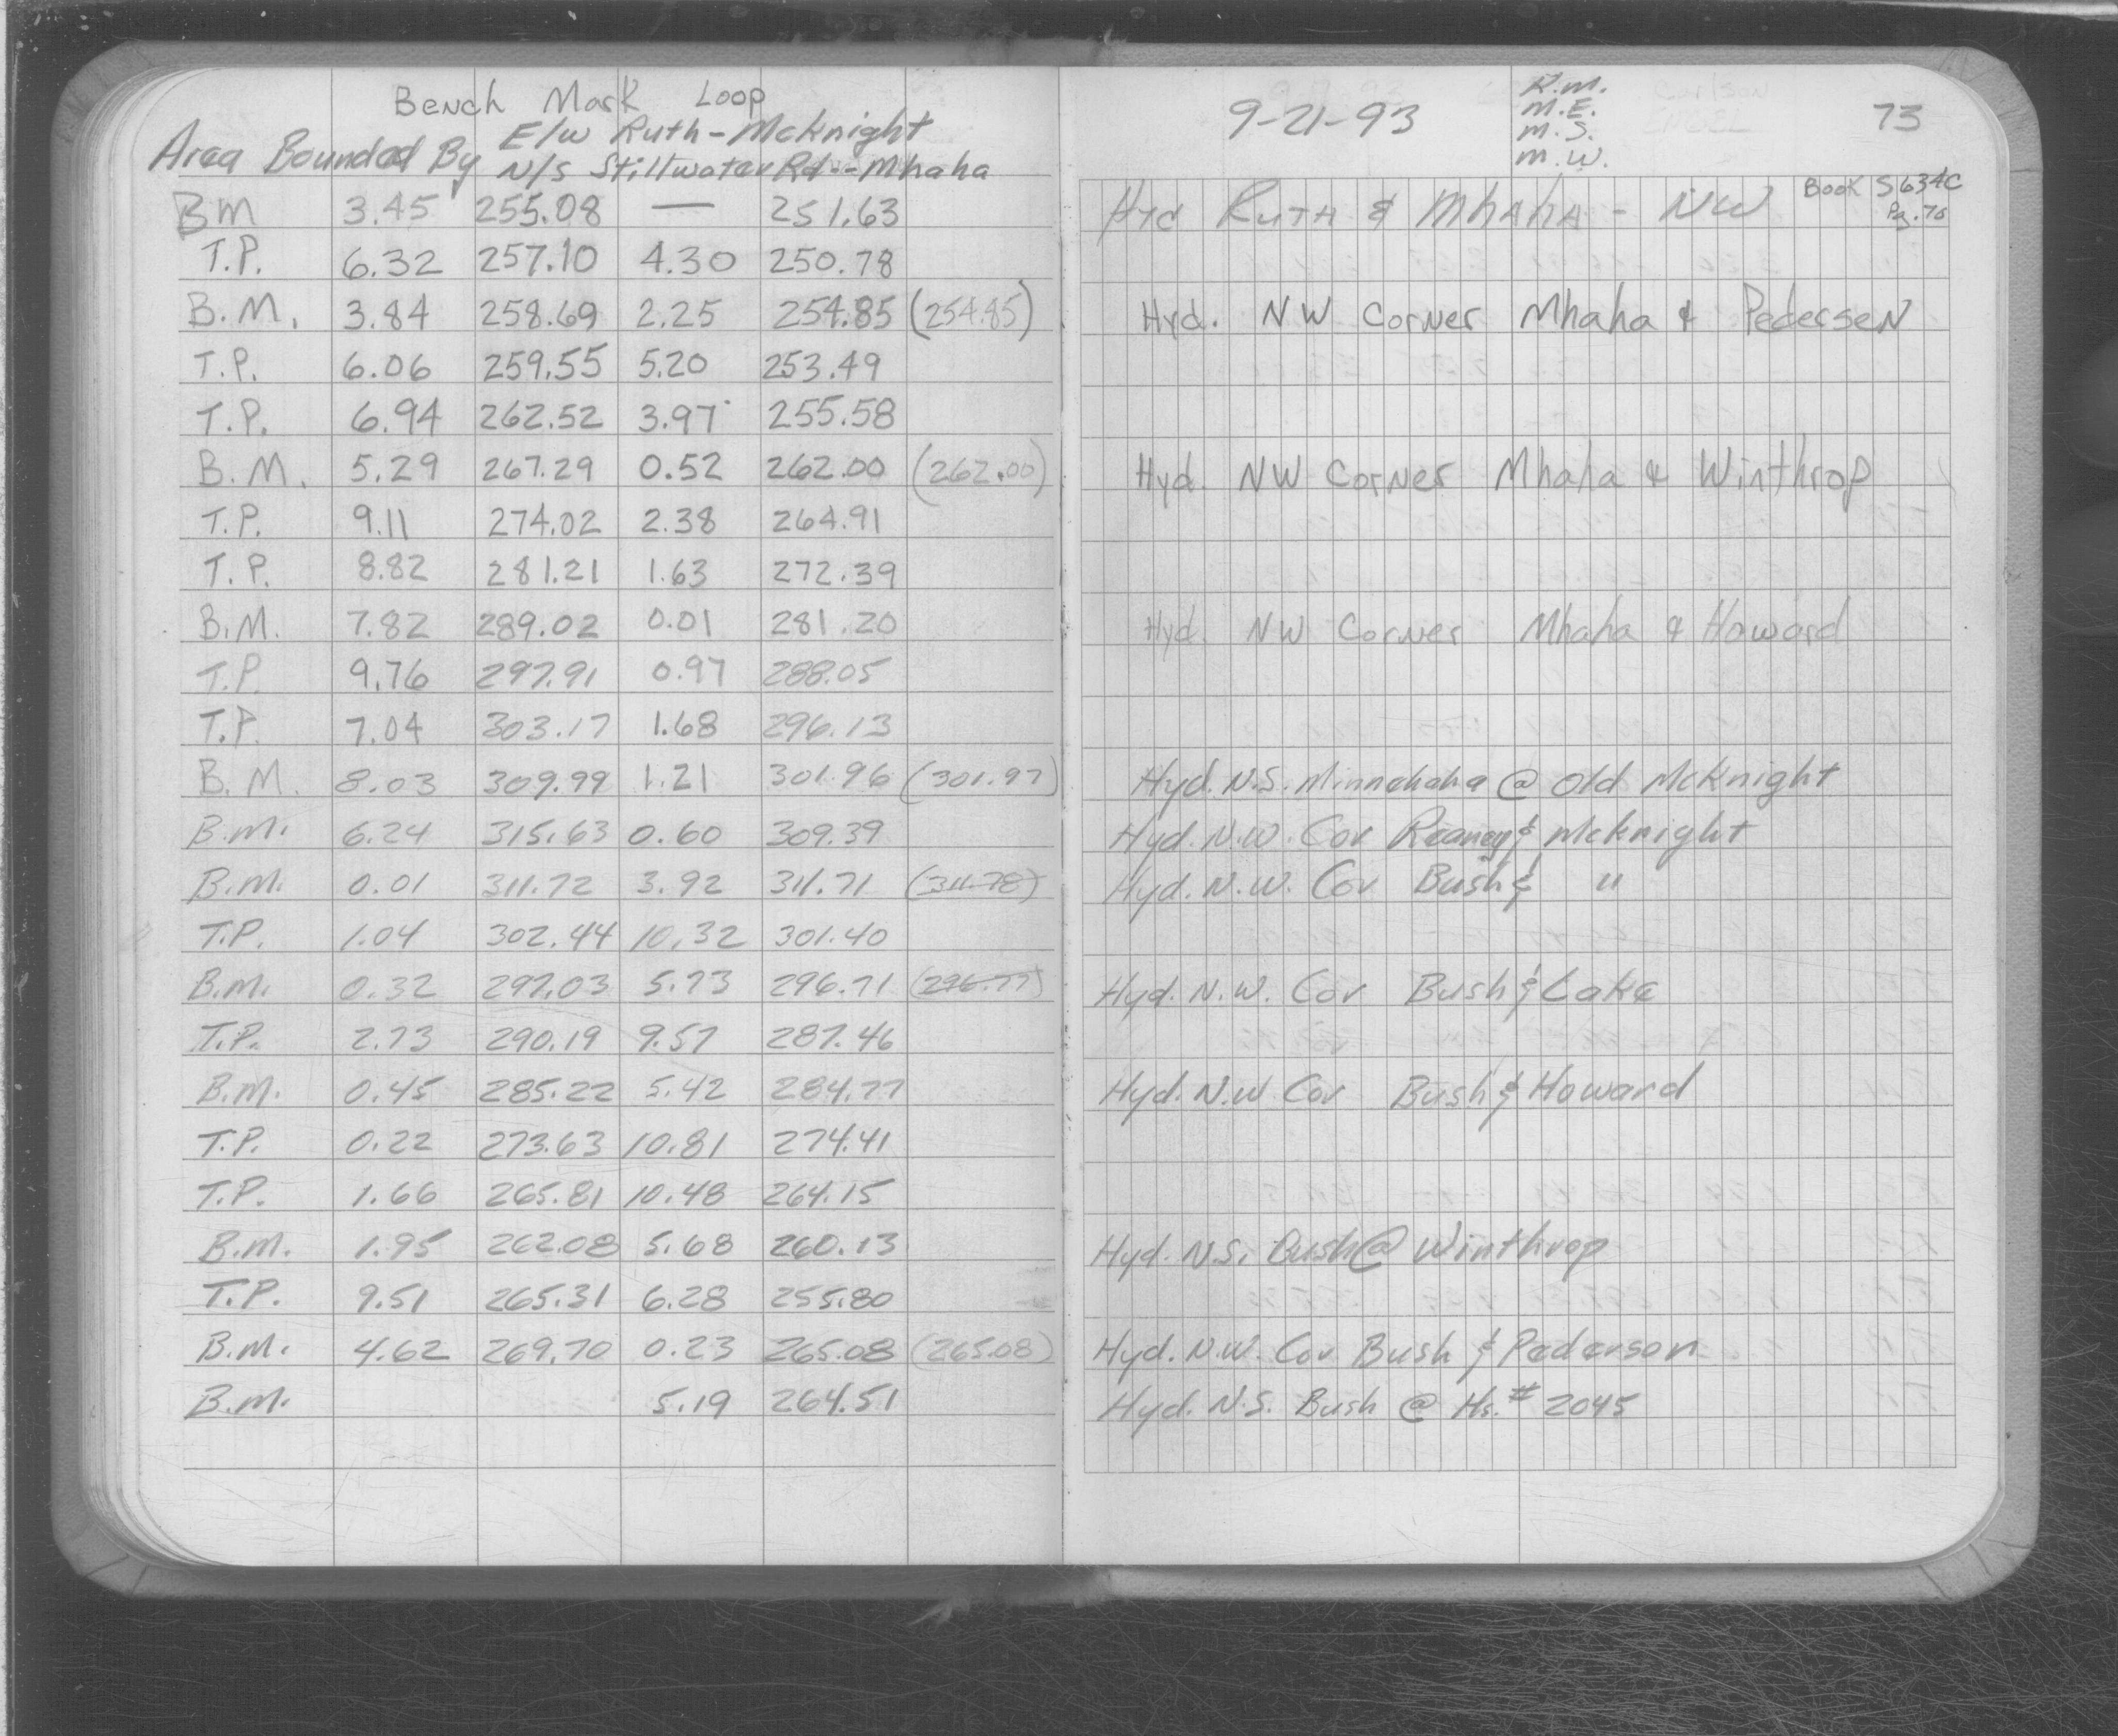 Bench Mark Loop
Area Bounded By E/W Ruth-McKnight
N/S Stillwater Rd.-Mhaha
BM 3.45 255.08 — 251.63
T.P. 6.32 257.10 4.30 250.78
B.M. 3.84 258.69 2.25 254.85 (254.85)
T.P. 6.06 259.55 5.20 253.49
T.P. 6.94 262.52 3.97 255.58
B.M. 5.29 267.29 0.52 262.00 (262.00)
T.P. 9.11 274.02 2.38 264.91
T.P. 8.82 281.21 1.63 272.39
B.M. 7.82 289.02 0.01 281.20
T.P. 9.76 297.91 0.97 288.05
T.P. 7.04 303.17 1.68 296.13
B.M. 8.03 309.99 1.21 301.96 (301.97)
B.M. 6.24 315.63 0.60 309.39
B.M. 0.01 311.72 3.92 311.71 (311.78)
T.P. 1.04 302.44 10.32 301.40
B.M. 0.32 297.03 5.73 296.71 (296.77)
T.P. 2.73 290.19 9.57 287.46
B.M. 0.45 285.22 5.42 284.77
T.P. 0.22 273.63 10.81 274.41
T.P. 1.66 265.81 10.48 264.15
B.M. 1.95 262.08 5.68 260.13
T.P. 9.51 265.31 6.28 255.80
B.M. 4.62 269.70 0.23 265.08 (265.08)
B.M. 5.19 264.51
9-21-93
R.M.
M.E.
M.S.
M.W.
73
Hyd Ruth & Mhaha - NW Book S634C
Pg. 76
Hyd. NW Corner Mhaha & Pedersen
Hyd. NW Corner Mhaha & Winthrop
Hyd. NW Corner Mhaha & Howard
Hyd. N.S. Minnehaha @ Old McKnight
Hyd. N.W. Cor Reaney & McKnight
Hyd. N.W. Cor Bush & "
Hyd. N.W. Cor Bush & Lake
Hyd. N.W Cor Bush & Howard
Hyd. N.S. Bush @ Winthrop
Hyd. N.W. Cor Bush & Pederson
Hyd. N.S. Bush @ Hs.# 2045